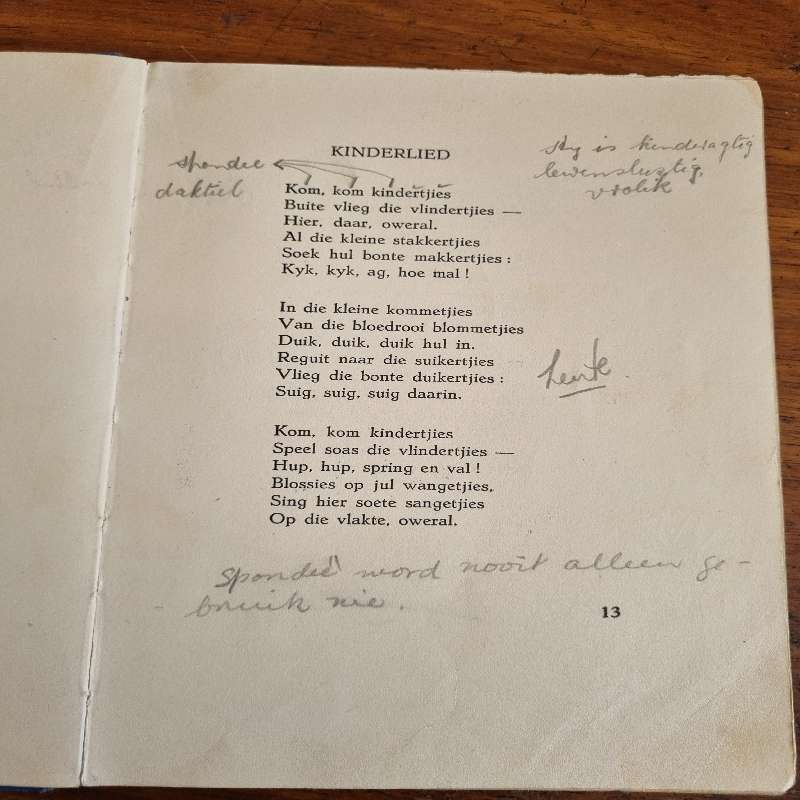 KINDERLIED
spondee
daktiel
sty is kinderagtig
lewenslustig,
vrolik
Kom, kom kindertjies
Buite vlieg die vlindertjies —
Hier, daar, oweral.
Al die kleine stakkertjies
Soek hul bonte makkertjies :
Kyk, kyk, ag, hoe mal !
In die kleine kommetjies
Van die bloedrooi blommetjies
Duik, duik, duik hul in.
Reguit naar die suikertjies
Vlieg die bonte duikertjies :
Suig, suig, suig daarin.
lente
Kom, kom kindertjies
Speel soas die vlindertjies —
Hup, hup, spring en val !
Blossies op jul wangetjies,
Sing hier soete sangetjies
Op die vlakte, oweral.
Spondeë word nooit alleen ge-
bruik nie.
13